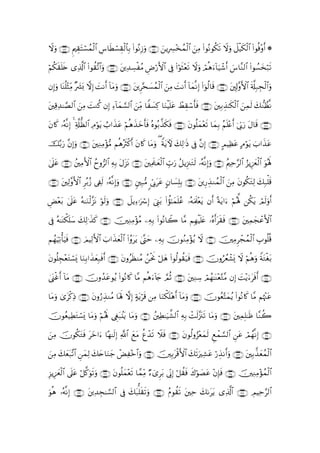 ۞ أَوْفُوا۟ ٱلْكَيْلَ وَلَا تَكُونُوا۟ مِنَ ٱلْمُخْسِرِينَ وَزِنُوا۟ بِٱلْقِسْطَاسِ ٱلْمُسْتَقِيمِ وَلَا
تَبْخَسُوا۟ ٱلنَّاسَ أَشْيَآءَهُمْ وَلَا تَعْثَوْا۟ فِى ٱلْأَرْضِ مُفْسِدِينَ وَٱتَّقُوا۟ ٱلَّذِى خَلَقَكُمْ
وَٱلْجِبِلَّةَ ٱلْأَوَّلِينَ قَالُوٓا۟ إِنَّمَآ أَنتَ مِنَ ٱلْمُسَحَّرِينَ وَمَآ أَنتَ إِلَّا بَشَرٌ مِّثْلُنَا وَإِن
نَّظُنُّكَ لَمِنَ ٱلْكَٰذِبِينَ فَأَسْقِطْ عَلَيْنَا كِسَفًا مِّنَ ٱلسَّمَآءِ إِن كُنتَ مِنَ ٱلصَّٰدِقِينَ
قَالَ رَبِّىٓ أَعْلَمُ بِمَا تَعْمَلُونَ فَكَذَّبُوهُ فَأَخَذَهُمْ عَذَابُ يَوْمِ ٱلظُّلَّةِ إِنَّهُۥ كَانَ
عَذَابَ يَوْمٍ عَظِيمٍ إِنَّ فِى ذَٰلِكَ لَءَايَةً وَمَا كَانَ أَكْثَرُهُم مُّؤْمِنِينَ وَإِنَّ رَبَّكَ
لَهُوَ ٱلْعَزِيزُ ٱلرَّحِيمُ وَإِنَّهُۥ لَتَنزِيلُ رَبِّ ٱلْعَٰلَمِينَ نَزَلَ بِهِ ٱلرُّوحُ ٱلْأَمِينُ عَلَىٰ
قَلْبِكَ لِتَكُونَ مِنَ ٱلْمُنذِرِينَ بِلِسَانٍ عَرَبِىٍّ مُّبِينٍ وَإِنَّهُۥ لَفِى زُبُرِ ٱلْأَوَّلِينَ
أَوَلَمْ يَكُن لَّهُمْ ءَايَةً أَن يَعْلَمَهُۥ عُلَمَٰٓؤُا۟ بَنِىٓ إِسْرَٰٓءِيلَ وَلَوْ نَزَّلْنَٰهُ عَلَىٰ بَعْضِ
ٱلْأَعْجَمِينَ فَقَرَأَهُۥ عَلَيْهِم مَّا كَانُوا۟ بِهِۦ مُؤْمِنِينَ كَذَٰلِكَ سَلَكْنَٰهُ فِى
قُلُوبِ ٱلْمُجْرِمِينَ لَا يُؤْمِنُونَ بِهِۦ حَتَّىٰ يَرَوُا۟ ٱلْعَذَابَ ٱلْأَلِيمَ فَيَأْتِيَهُم
بَغْتَةً وَهُمْ لَا يَشْعُرُونَ فَيَقُولُوا۟ هَلْ نَحْنُ مُنظَرُونَ أَفَبِعَذَابِنَا يَسْتَعْجِلُونَ
أَفَرَءَيْتَ إِن مَّتَّعْنَٰهُمْ سِنِينَ ثُمَّ جَآءَهُم مَّا كَانُوا۟ يُوعَدُونَ مَآ أَغْنَىٰ
عَنْهُم مَّا كَانُوا۟ يُمَتَّعُونَ وَمَآ أَهْلَكْنَا مِن قَرْيَةٍ إِلَّا لَهَا مُنذِرُونَ ذِكْرَىٰ وَمَا
كُنَّا ظَٰلِمِينَ وَمَا تَنَزَّلَتْ بِهِ ٱلشَّيَٰطِينُ وَمَا يَنۢبَغِى لَهُمْ وَمَا يَسْتَطِيعُونَ
إِنَّهُمْ عَنِ ٱلسَّمْعِ لَمَعْزُولُونَ فَلَا تَدْعُ مَعَ ٱللَّهِ إِلَٰهًا ءَاخَرَ فَتَكُونَ مِنَ
ٱلْمُعَذَّبِينَ وَأَنذِرْ عَشِيرَتَكَ ٱلْأَقْرَبِينَ وَٱخْفِضْ جَنَاحَكَ لِمَنِ ٱتَّبَعَكَ مِنَ
ٱلْمُؤْمِنِينَ فَإِنْ عَصَوْكَ فَقُلْ إِنِّى بَرِىٓءٌ مِّمَّا تَعْمَلُونَ وَتَوَكَّلْ عَلَى ٱلْعَزِيزِ
ٱلرَّحِيمِ ٱلَّذِى يَرَىٰكَ حِينَ تَقُومُ وَتَقَلُّبَكَ فِى ٱلسَّٰجِدِينَ إِنَّهُۥ هُوَ